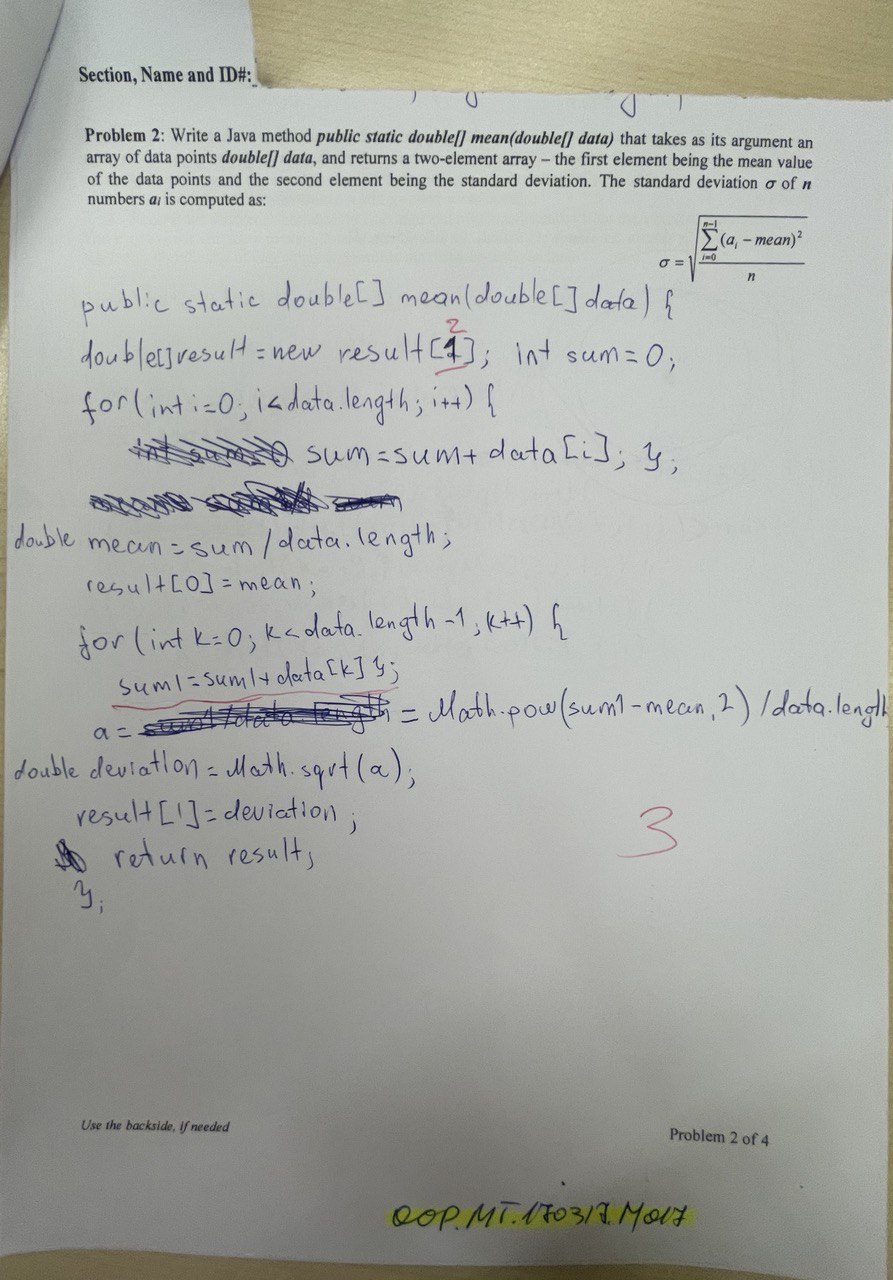 Section, Name and ID#:
Problem 2: Write a Java method public static double[] mean(double[] data) that takes as its argument an
array of data points double[] data, and returns a two-element array – the first element being the mean value
of the data points and the second element being the standard deviation. The standard deviation σ of n
numbers aᵢ is computed as:
σ = √(∑_{i=0}^{n−1} (aᵢ − mean)² / n)
public static double[] mean(double[] data) {
2
double[] result = new result[1]; int sum = 0;
for(int i=0; i<data.length; i++) {
sum = sum + data[i]; };
double mean = sum / data.length;
result[0] = mean;
for(int k=0; k<data.length-1; k++) {
sum1 = sum1 + data[k] };
a = = Math.pow(sum1-mean, 2) / data.length
double deviation = Math.sqrt(a);
result[1] = deviation;
3
return result;
};
Use the backside, if needed
Problem 2 of 4
OOP.MT.170317.M017